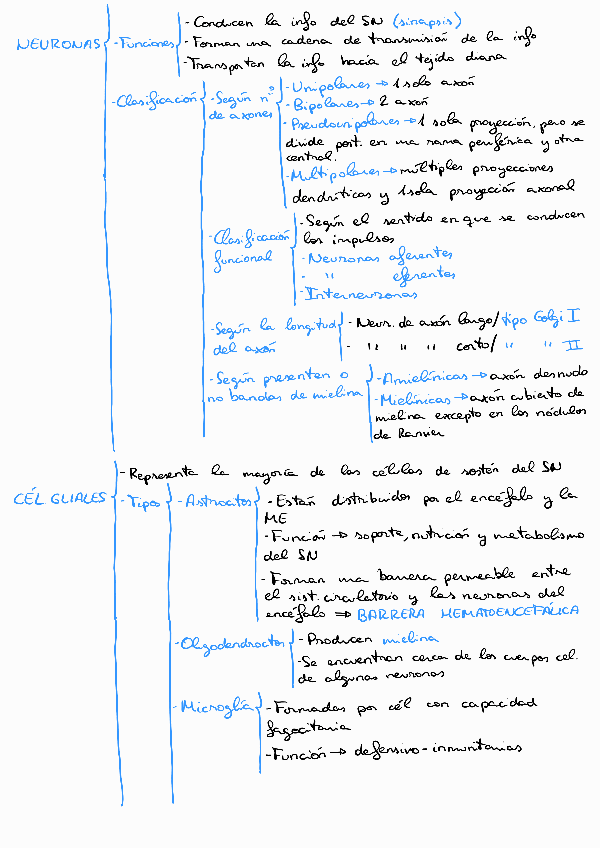 - Conducen la info del SN (sinapsis)
NEURONAS - Funciones - Forman una cadena de transmisión de la info
- Transportan la info hacia el tejido diana
- Clasificación - Según nº de axones - Unipolares → 1 solo axón
- Bipolares → 2 axón
- Pseudounipolares → 1 sola proyección, pero se
divide post. en una rama periférica y otra
central.
- Multipolares → múltiples proyecciones
dendríticas y 1 sola proyección axonal
- Clasificación funcional - Según el sentido en que se conducen
los impulsos
- Neuronas aferentes
- " eferentes
- Interneuronas
- Según la longitud - Neur. de axón largo/tipo Golgi I
del axón - " " " corto/ " " II
- Según presenten o - Amielínicas → axón desnudo
no bandas de mielina - Mielínicas → axón cubierto de
mielina excepto en los nódulos
de Ranvier
- Representa la mayoría de las células de sostén del SN
CÉL GLIALES - Tipos - Astrocitos - Están distribuidos por el encéfalo y la
ME
- Función → soporte, nutrición y metabolismo
del SN
- Forman una barrera permeable entre
el sist. circulatorio y las neuronas del
encéfalo ⇒ BARRERA HEMATOENCEFÁLICA
- Olgodendrocitos - Producen mielina
- Se encuentran cerca de los cuerpos cel.
de algunas neuronas
- Microglía - Formadas por cél con capacidad
fagocitaria
- Función → defensivo - inmunitarias